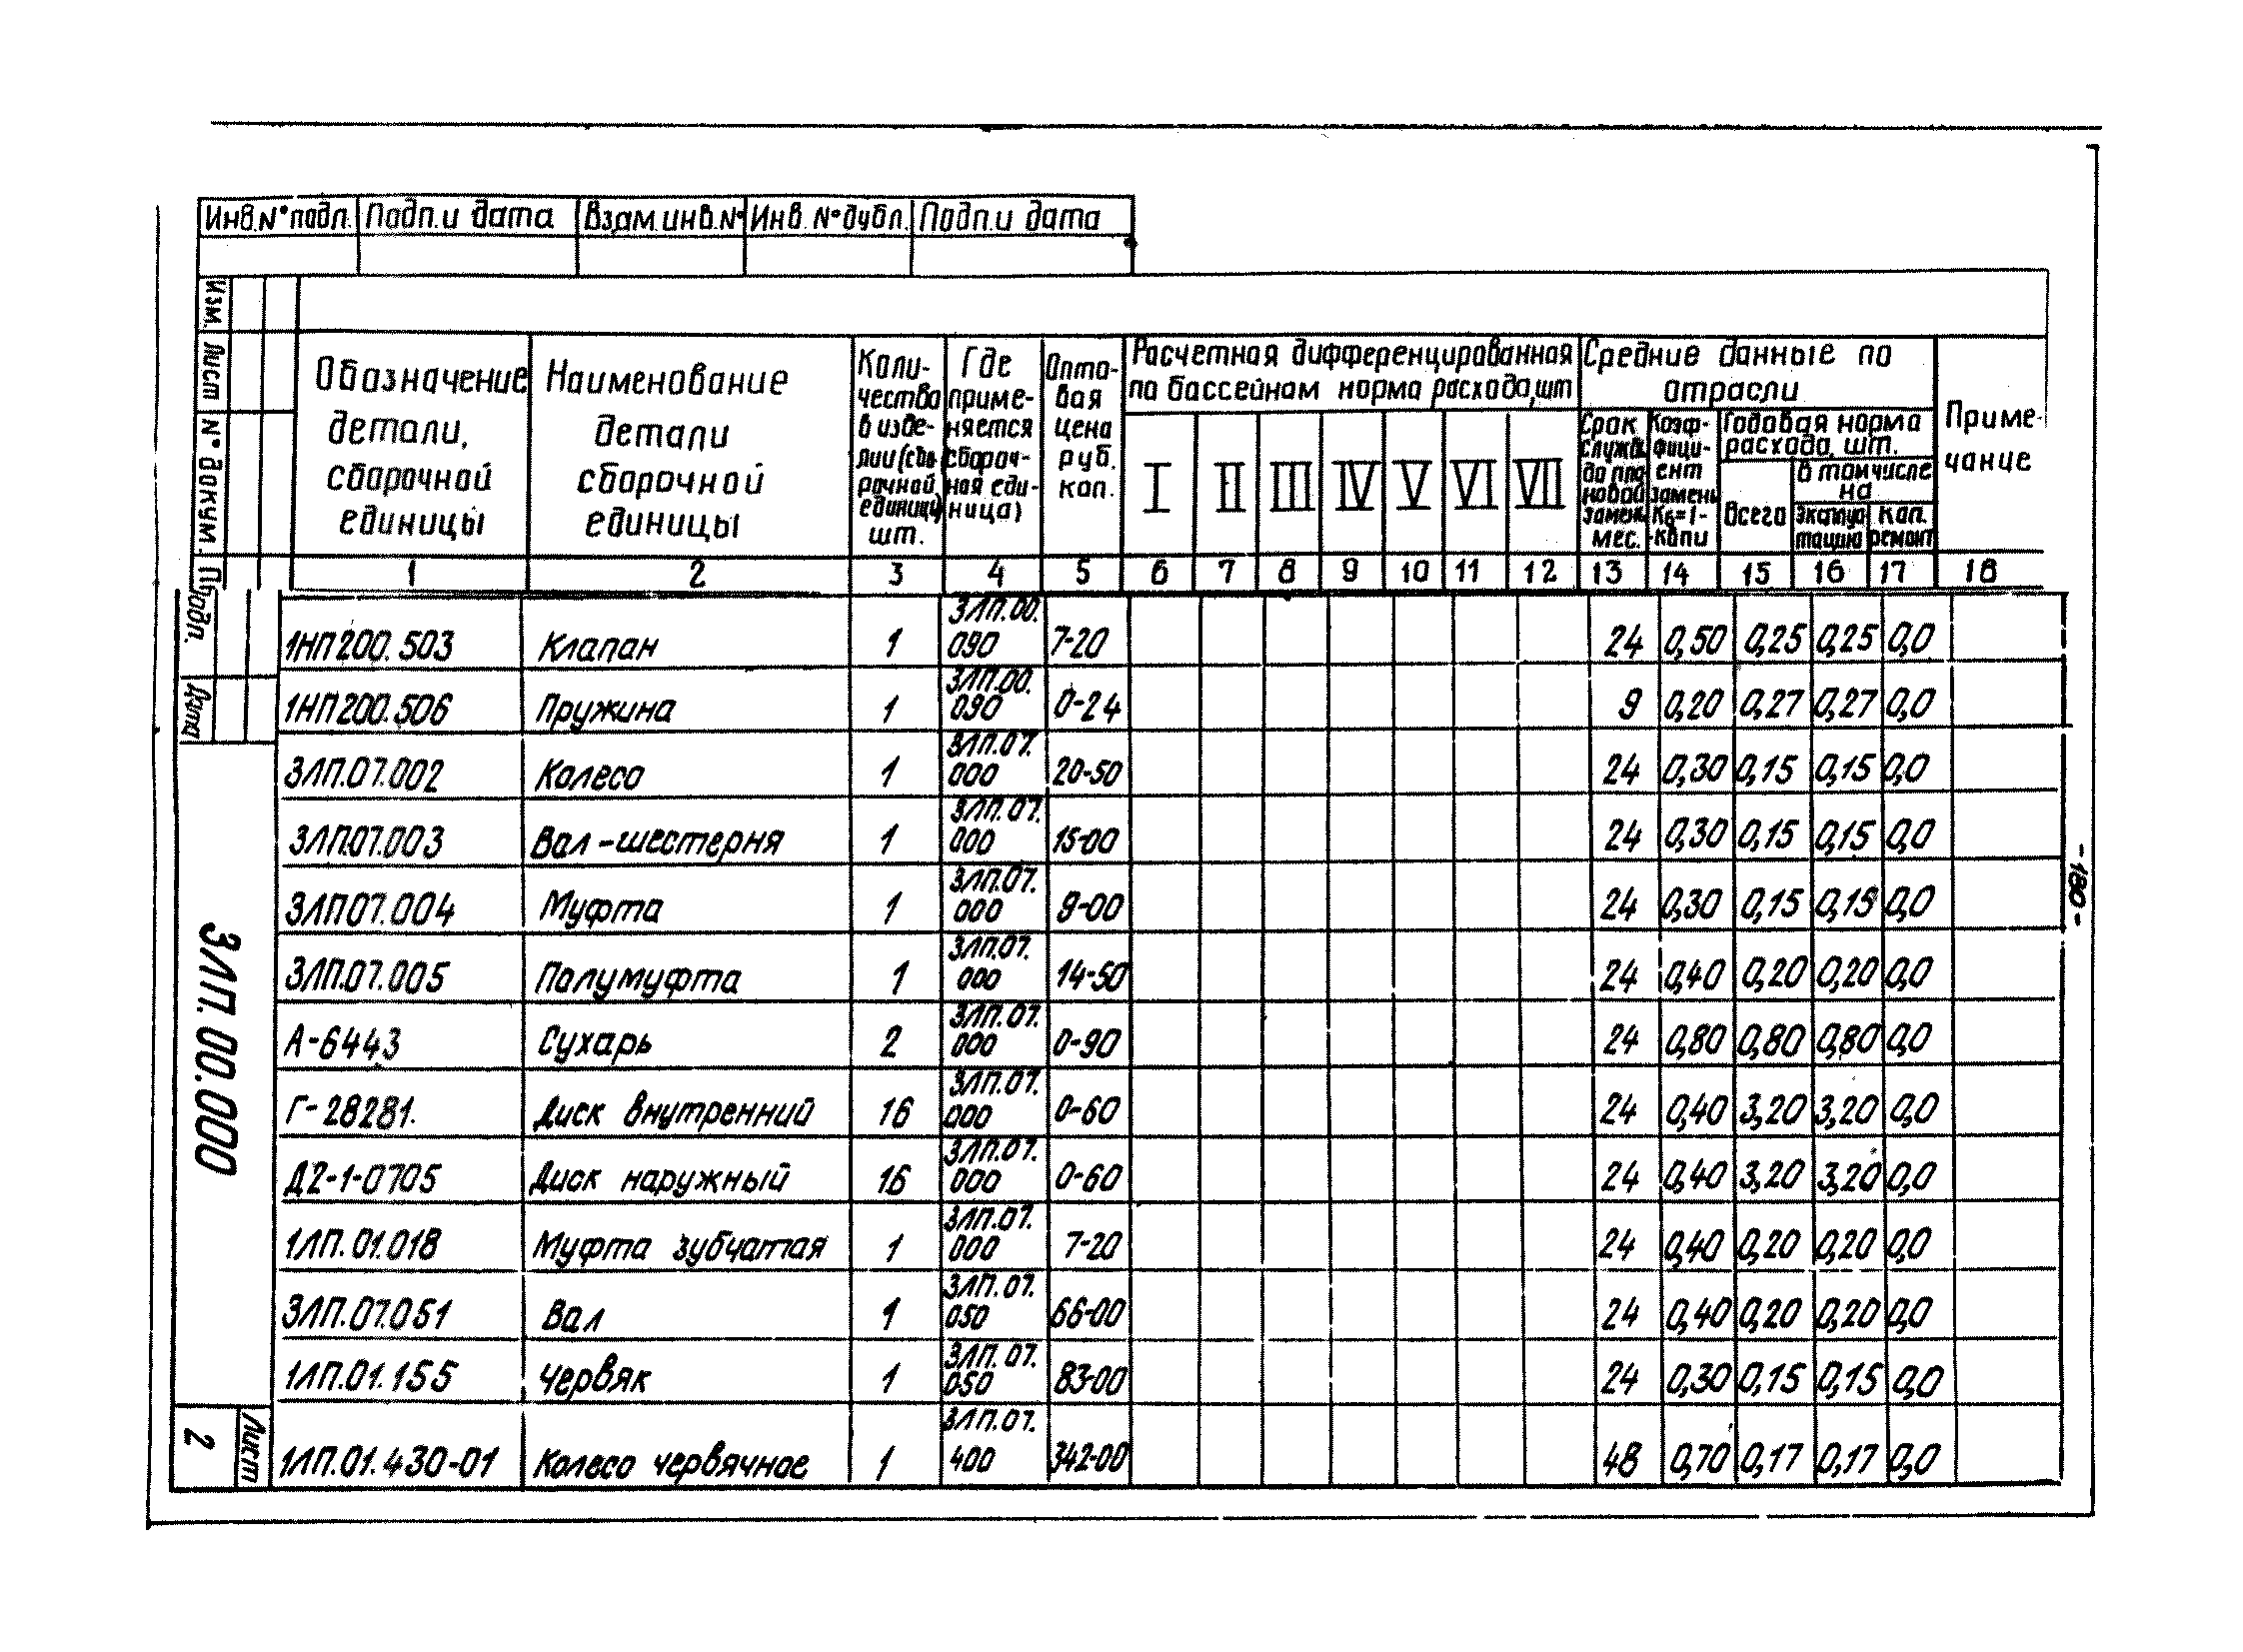 Инв.N° подл. Подп.и дата Взам.инв.N° Инв.N° дубл. Подп.и дата
Изм. Лист N° докум. Подп. Дата
Обозначение детали, сборочной единицы
Наименование детали сборочной единицы
Количество в изделии (сборочной единице) шт.
Где применяется сборочная единица)
Оптовая цена руб. коп.
Расчетная дифференцированная по бассейнам норма расхода, шт
I II III IV V VI VII
Средние данные по отрасли
Срок службы до плановой замены мес.
Коэффициент замены
Годовая норма расхода, шт.
Всего
в том числе на
эксплуатацию
кап. ремонт
Примечание
1 2 3 4 5 6 7 8 9 10 11 12 13 14 15 16 17 18
1НП200.503 Клапан 1 3ЛП.00.090 7-20 24 0,50 0,25 0,25 0,0
1НП200.506 Пружина 1 3ЛП.00.090 0-24 9 0,20 0,27 0,27 0,0
3ЛП.07.002 Колесо 1 3ЛП.07.000 20-50 24 0,30 0,15 0,15 0,0
3ЛП.07.003 Вал-шестерня 1 3ЛП.07.000 15-00 24 0,30 0,15 0,15 0,0
3ЛП07.004 Муфта 1 3ЛП.07.000 9-00 24 0,30 0,15 0,15 0,0
3ЛП.07.005 Полумуфта 1 3ЛП.07.000 14-50 24 0,40 0,20 0,20 0,0
А-6443 Сухарь 2 3ЛП.07.000 0-90 24 0,80 0,80 0,80 0,0
Г-28281. Диск внутренний 16 3ЛП.07.000 0-60 24 0,40 3,20 3,20 0,0
Д2-1-0705 Диск наружный 16 3ЛП.07.000 0-60 24 0,40 3,20 3,20 0,0
1ЛП.01.018 Муфта зубчатая 1 3ЛП.07.000 7-20 24 0,40 0,20 0,20 0,0
3ЛП.07.051 Вал 1 3ЛП.07.050 66-00 24 0,40 0,20 0,20 0,0
1ЛП.01.155 Червяк 1 3ЛП.07.050 83-00 24 0,30 0,15 0,15 0,0
1ЛП.01.430-01 Колесо червячное 1 3ЛП.07.400 342-00 48 0,70 0,17 0,17 0,0
3ЛП.00.000
Лист
2
-180-